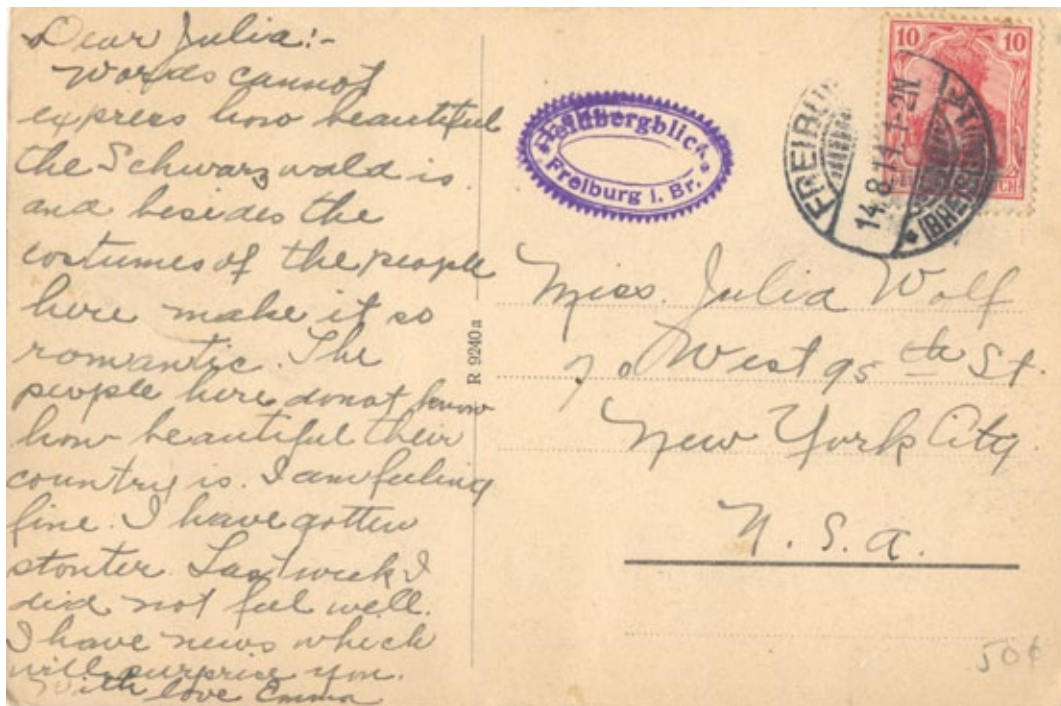 Dear Julia:-
Words cannot
express how beautiful
the Schwarzwald is
and besides the
costumes of the people
here make it so
romantic. The
people here do not know
how beautiful their
country is. I am feeling
fine. I have gotten
stouter. Last week I
did not feel well.
I have news which
will surprise you.
With love Emma
R 9240a
Feldbergblick
Freiburg i. Br.
10 10
FREIBURG
14.8.11.1-2N
Miss. Julia Wolf
70 West 95th St.
New York City
U.S.A.
50¢